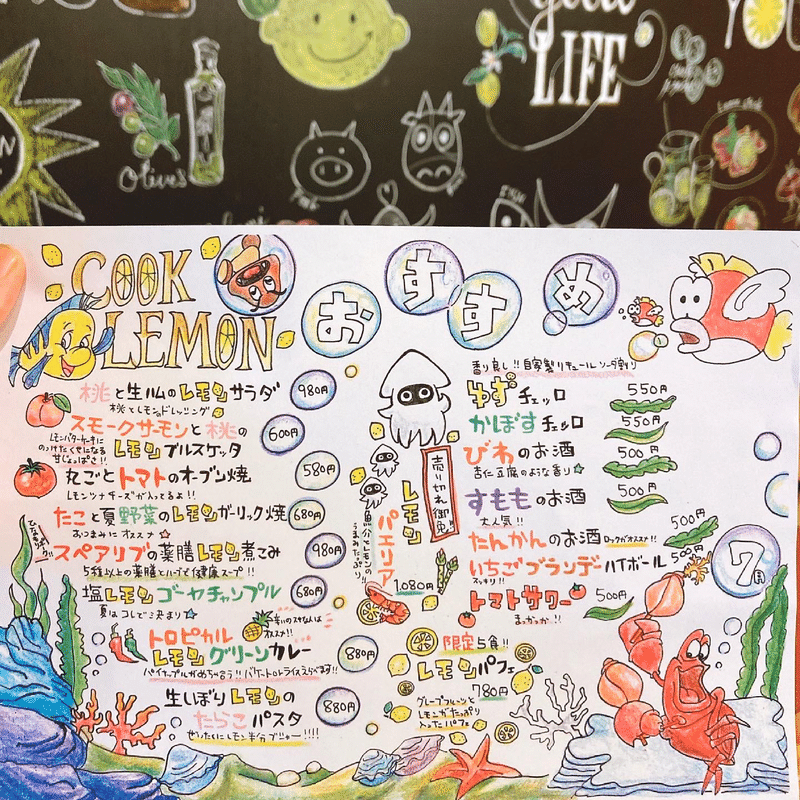 LIFE
Olives
COOK
LEMON
おすすめ
桃と生ハムのレモンサラダ 980円
桃とレモンのドレッシング
スモークサーモンと桃の
レモンブルスケッタ 600円
レモンバターケーキに
のっけたくせになる
甘じょっぱさ!!
丸ごとトマトのオーブン焼 580円
レモンツナチーズが入ってるよ!!
たこと夏野菜のレモンガーリック焼 680円
おつまみにオススメ☆
スペアリブの薬膳レモン煮こみ 980円
5種以上の薬膳とハーブで健康スープ!!
塩レモンゴーヤチャンプル 680円
夏はコレでキマり☆
トロピカル
レモングリーンカレー 880円
辛いのスキな人は
オススメ!!
パイナップルがめちゃ合う!!バケットorライスえらべます!!
生しぼりレモンの
たらこパスタ 880円
ぜいたくにレモン半分ブシャー!!!!
売り切れ御免!!
レモン
パエリア
1080円
魚介とレモンの
うまみたっぷり
限定5食!!
レモンパフェ
780円
グレープフルーツと
レモンがたっぷり
入ったパフェ
香り良し!!自家製リキュールソーダ割り
ゆずチェッロ 550円
かぼすチェッロ 550円
びわのお酒 500円
杏仁豆腐のような香り☆
すもものお酒 500円
大人気!!
たんかんのお酒 ロックがオススメ!! 500円
いちごブランデーハイボール 500円
スッキリ!!
トマトサワー 500円
まっかっか!!
7月